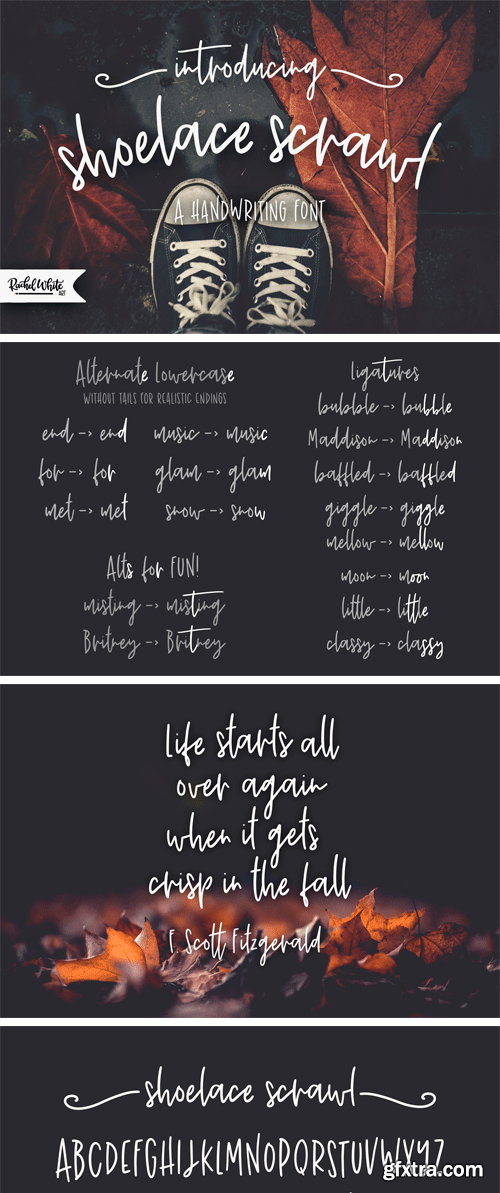 introducing
shoelace scrawl
A HANDWRITING FONT
Rachel White
ART
Alternate lowercase
WITHOUT TAILS FOR REALISTIC ENDINGS
end -> end
music -> music
for -> for
glam -> glam
met -> met
snow -> snow
Alts for FUN!
misting -> misting
Britney -> Britney
ligatures
bubble -> bubble
Maddison -> Maddison
baffled -> baffled
giggle -> giggle
mellow -> mellow
moon -> moon
little -> little
classy -> classy
life starts all
over again
when it gets
crisp in the fall
F. Scott Fitzgerald
shoelace scrawl
ABCDEFGHIJKLMNOPQRSTUVWXYZ
gfxtra.com